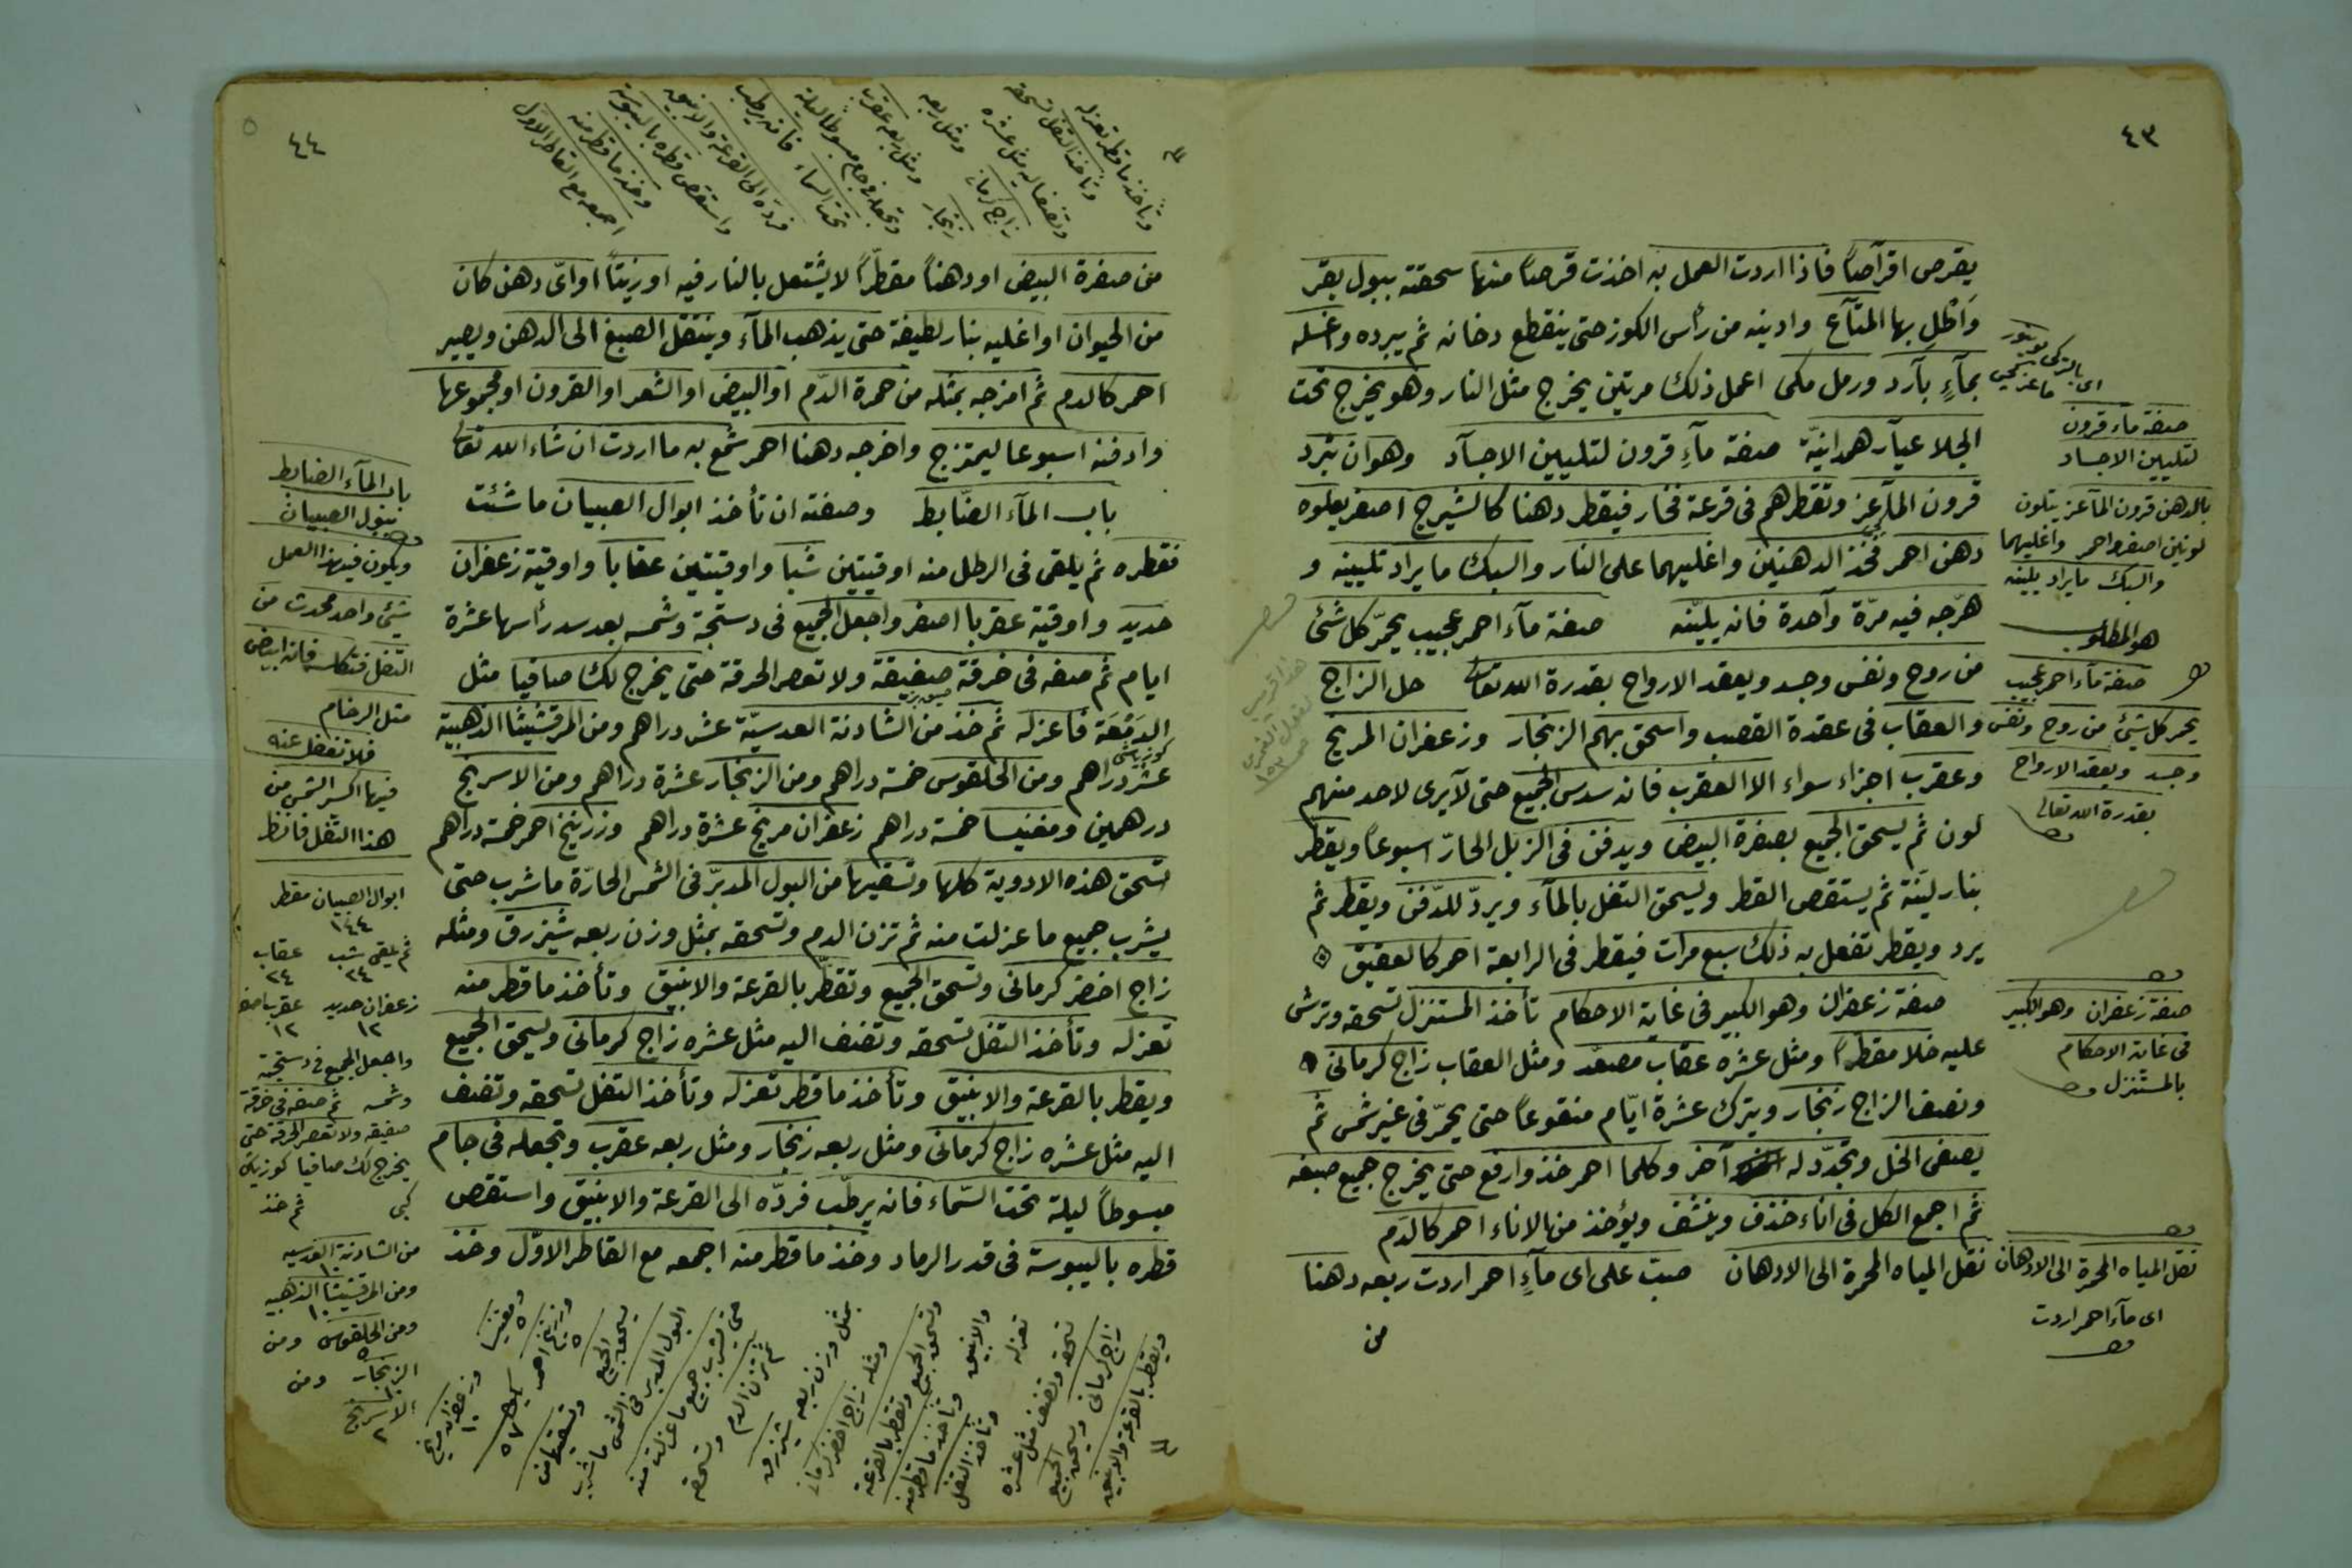 ٤٣
يقرص اقرآصاً فاذا اردت العمل به اخذت قرصاً منها سحقته ببول بقر
وَاَطْلِ بها المتآع وادنيه من رأس الكوز حتى ينقطع دخانه ثم يبرده واغسله
بمآءٍ بآرد ورمل مكى اعمل ذلك مرتين يخرج مثل النار وهو يخرج تحت
الجلا عيآر همدانيّة صفة مآءِ قرون لتليين الاجسآد وهو ان تبرد
قرون المآعز وتقطرهم فى قرعة فخار فيقطر دهنا كالشيرج اصفر يعلوه
دهن احمر فخذ الدهنين واغليهما على النار والسبك ما يراد تليينه و
هرّجه فيه مرّة وآحدة فانه يليّنه صفة مآء احمر عجيب يحمّر كل شئ
من روح ونفس وجسد ويعقد الارواح بقدرة الله تعالى حل الزاج
والعقاب فى عقدة القصب واسحق بهم الزنجار وزعفران المريخ
وعقرب اجزاء سواء الا العقرب فانه سدس الجميع حتى لآيرى لاحد منهم
لون ثم يسحق الجميع بصفرة البيض ويدفن فى الزبل الحارّ اسبوعاً ويقطّر
بنار ليّنة ثم يستقص القطر ويسحق التفل بالمآء ويردّ للدّفن ويقطر ثم
يرد ويقطر تفعل به ذلك سبع مرات فيقطر فى الرابعة احمر كالعقيق
صفة زعفران وهو الكبير فى غاية الاحكام تأخذ المستنزل تسحقه وترش
عليه خلا مقطراً ومثل عشره عقاب مصعّد ومثل العقاب زاج كرمانى
ونصف الزاج زنجار ويترك عشرة ايّام منقوعاً حتى يحمّر فى غير شمس ثم
يصفى الخل وتجدّد له آخر وكلما احمر خذ وارفع حتى يخرج جميع صبغه
ثم اجمع الكل فى اناء خذف وينشف ويؤخذ من الاناء احمر كالدّم
نقل المياه المحمرة الى الادهان صبّ على اى مآءٍ احمر اردت ربعه دهنا
من
اى بالتركى بوينوز
ماعز كچى
صفة مآء قرون
لتليين الاجساد
بالدهن قرون المآعز يتلون
لونين اصفر واحمر واغليهما
والسبك ما يراد يلينه
هو المطلوب
صفة مآء احمر عجيب
يحمر كل شيئ من روح ونفس
وجسد ويعقد الارواح
بقدرة الله تعالى
صفة زعفران وهو الكبير
فى غاية الاحكام
بالمستنزل
نقل المياه المحمرة الى الادهان
اى مآء احمر اردت
٤٤
وتأخذ ما قطر تعزله
وتأخذ التفل تسحقه
وتضف اليه مثل عشره
زاج كرمانى
ومثل ربعه
زنجار
ومثل ربعه عقرب
وتجعله فى جام مبسوطا ليلة
تحت السماء فانه يرطب
فرده الى القرعة والانبيق
واستقص قطره باليبوسة
وخذ ما قطر منه
اجمعه مع القاطر الاول
من صفرة البيض او دهناً مقطّراً لا يشتعل بالنار فيه او زيتاً او اىّ دهن كان
من الحيوان او اغليه بنار لطيفة حتى يذهب المآء وينتقل الصبغ الى الدهن ويصير
احمر كالدم ثم امزجه بمثله من حمرة الدّم او البيض او الشعر او القرون او مجموعها
وادفنه اسبوعا ليمتزج واخرجه دهنا احمر شمّع به ما اردت ان شاء الله تعالى
باب المآء الضّابط وصفته ان تأخذ ابوال الصبيان ما شئت
فقطره ثم يلقى فى الرطل منه اوقيتين شبا واوقيتين عقاباً واوقية زعفران
حديد واوقية عقربا اصفر واجعل الجميع فى دستجة وشمسه بعد سد رأسها عشرة
ايام ثم صفه فى خرقة صفيقة ولا تعصر الخرقة حتى يخرج لك صافيا مثل
الدّمْعَة فاعزله ثم خذ من الشادنة العدسيّة عشر دراهم ومن المرقشيثا الذهبية
عشر دراهم ومن الحلقوس خمسة دراهم ومن الزنجار عشرة دراهم ومن الاسرنج
درهمين ومغنيسا خمسة دراهم زعفران مريخ عشرة دراهم وزرنيخ احمر خمسة دراهم
تسحق هذه الادوية كلها وتسقيها من البول المدبّر فى الشمس الحارّة ما شرب حتى
يشرب جميع ما عزلت منه ثم تزن الدم وتسحقه بمثل وزن ربعه شيزرق ومثله
زاج اخضر كرمانى وتسحق الجميع وتقطّر بالقرعة والانبيق وتأخذ ما قطر منه
تعزله وتأخذ التفل تسحقه وتضف اليه مثل عشره زاج كرمانى ويسحق الجميع
ويقطر بالقرعة والانبيق وتأخذ ما قطر تعزله وتأخذ التفل تسحقه وتضف
اليه مثل عشره زاج كرمانى ومثل ربعه زنجار ومثل ربعه عقرب وتجعله فى جام
مبسوطاً ليلة تحت السّماء فانه يرطّب فردّه الى القرعة والانبيق واستقص
قطره باليبوسة فى قدر الرماد وخذ ما قطر منه اجمعه مع القاطر الاوّل وخذ
باب المآء الضابط
ببول الصبيان
ويكون فيهذا العمل
شيئ واحد محدث من
التفل فتكلسه فانه ابيض
مثل الرخام
فلا تغفل عنه
فيها اكسير الشمس من
هذا الثفل فانظر
ابوال الصبيان مقطر
١٤٤
ثم يلقى شب عقاب
٢٤ ٢٤
زعفران حديد عقربا صفر
١٢ ١٢
واجعل الجميع فى دستجة
وشمسه ثم صفه فى خرقة
صفيقه ولا تعصر الخرقة حتى
يخرج لك صافيا كوز ياشى
كبى ثم خذ
من الشادنة العدسيه
١٠
ومن المرقشيثا الذهبيه
١٠
ومن الحلقوس ومن
٥
الزنجار ومن
١٠
الاسرنج
٢
ومغنيسا
٥
وزعفران مريخ
١٠
وزرنيخ احمر
٥
تسحق الجميع
وتسقيها من
البول المدبر فى الشمس ما شرب
حتى يشرب جميع ما عزلت منه
ثم تزن الدم وتسحقه
بمثل وزن ربعه شيزرق
ومثله زاج اخضر كرمانى
وتسحق الجميع وتقطر بالقرعة
والانبيق وتأخذ ما قطر منه
تعزله وتأخذ التفل
تسحقه وتضف مثل عشره
زاج كرمانى ويسحق الجميع
ويقطر بالقرعة والانبيق